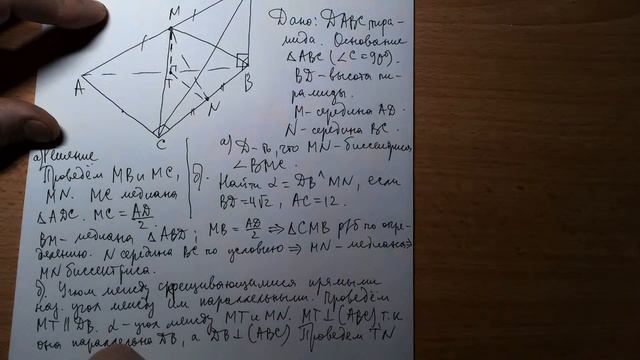 M
A
T
B
N
C
Дано: DABC пира-
мида. Основание
△ABC (∠C=90°).
BD-высота пи-
рамиды.
M-середина AD.
N-середина BC.
а) Решение
Проведём MB и MC,
MN. MC медиана
△ADC. MC = AD/2
а) Д-ть, что MN-биссектриса
∠BMC.
б). Найти α = DB^MN, если
BD=4√2, AC=12.
BM-медиана △ABD; MB = AD/2 ⇒ △CMB р/б по опре-
делению. N середина BC по условию ⇒ MN-медиана ⇒
MN биссектриса.
б. Углом между скрещивающимися прямыми
наз. угол между им параллельными. Проведём
MT ∥ DB. α-угол между MT и MN. MT⊥(ABC), т.к
она параллельно DB, а DB⊥(ABC) Проведём TN